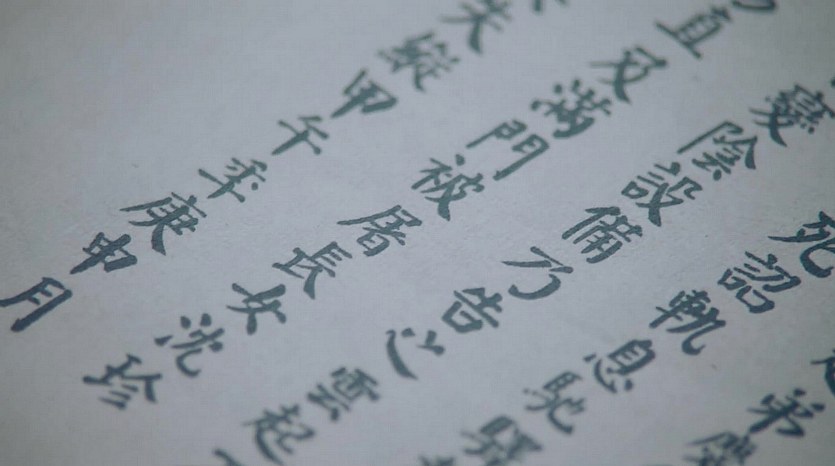 弟
死認軌息馳
變陰設備乃告之雲起
直又滿門被屠長女沈珍
失縱甲午年庚申月